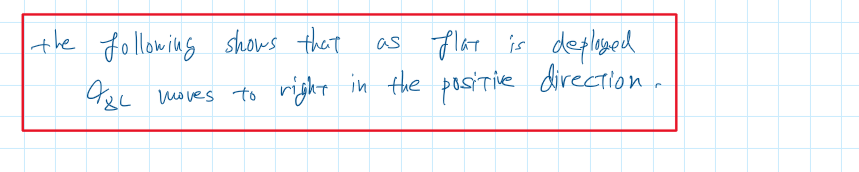 the following shows that as flat is deployed
moves to right in the positive direction.